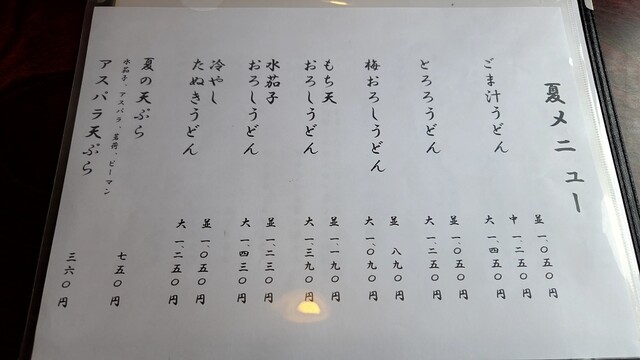 夏メニュー
ごま汁うどん
並 一、〇五〇円
中 一、二五〇円
大 一、四五〇円
とろろうどん
並 一、〇五〇円
大 一、二五〇円
梅おろしうどん
並 八九〇円
大 一、〇九〇円
もち天
おろしうどん
並 一、一九〇円
大 一、三九〇円
水茄子
おろしうどん
並 一、二三〇円
大 一、四三〇円
冷やし
たぬきうどん
並 一、〇五〇円
大 一、二五〇円
夏の天ぷら
水茄子、アスパラ、茗荷、ピーマン
七五〇円
アスパラ天ぷら
三六〇円